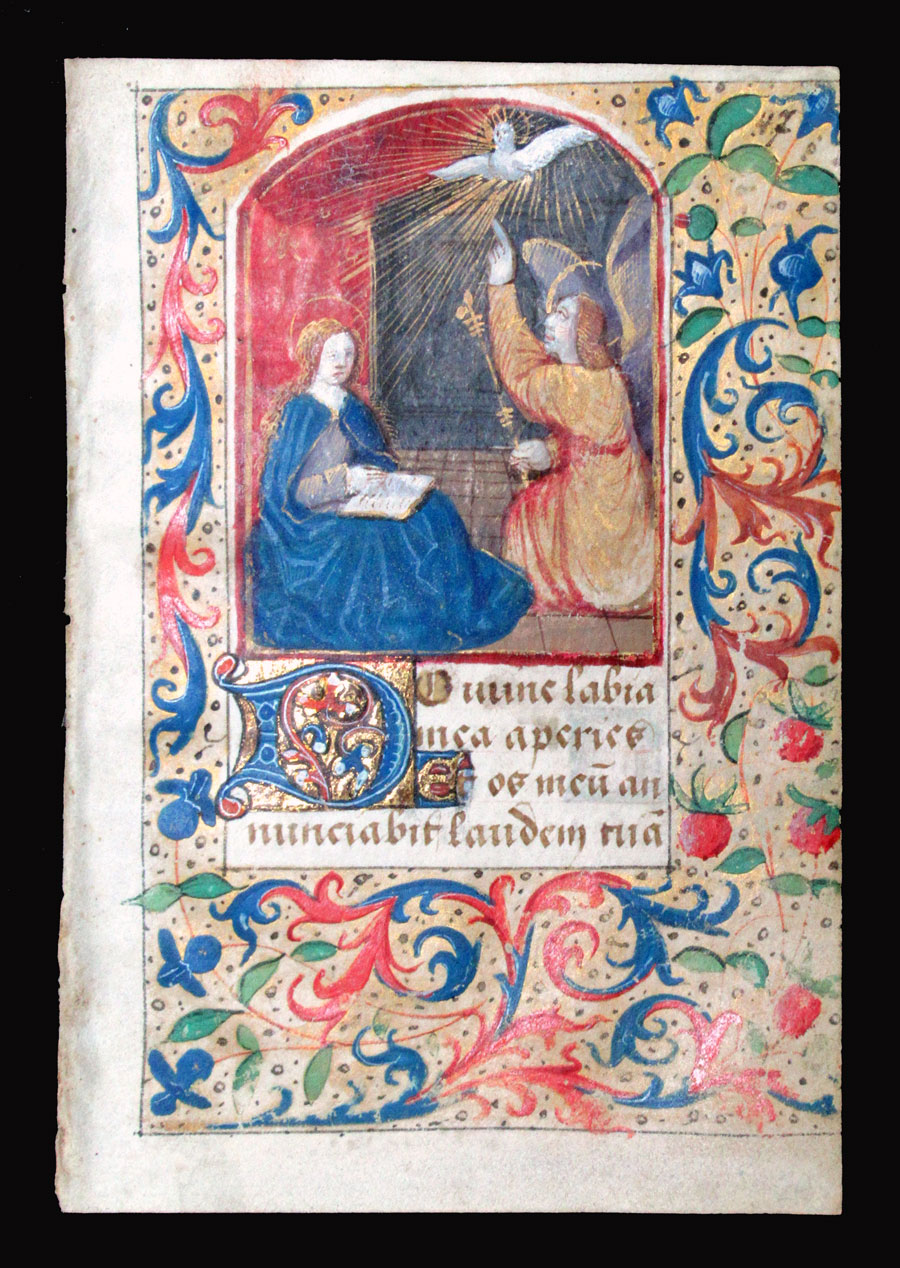 DOmine labia
mea aperies
Et os meū an
nunciabit laudem tuā